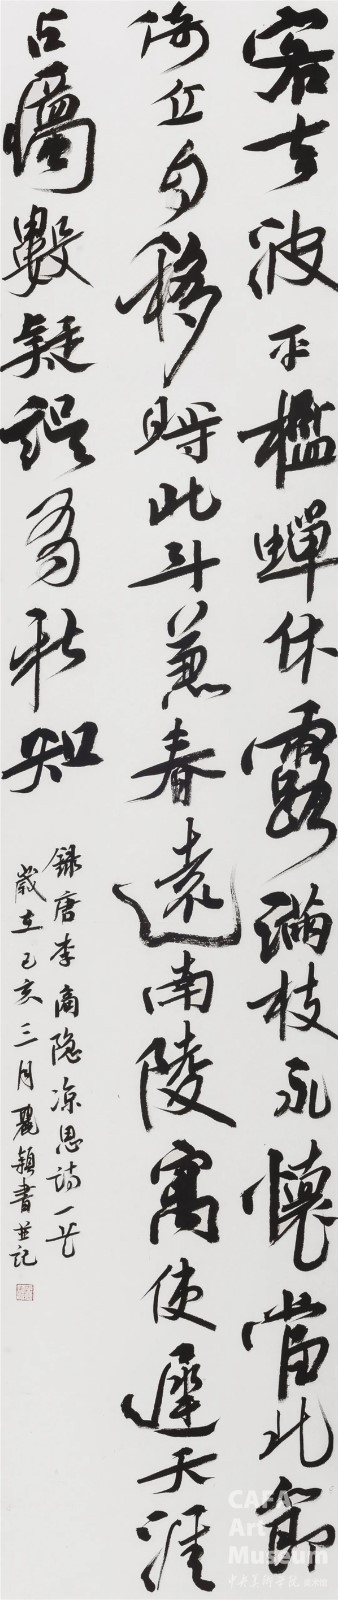 客去波平檻蟬休露滿枝永懷當此節
倚立自移時北斗兼春遠南陵寓使遲天涯
占夢數疑誤有新知
録唐李商隐凉思詩一首
歲在己亥三月麗穎書並記
CAFA
Art
Museum
中央美術學院美术馆